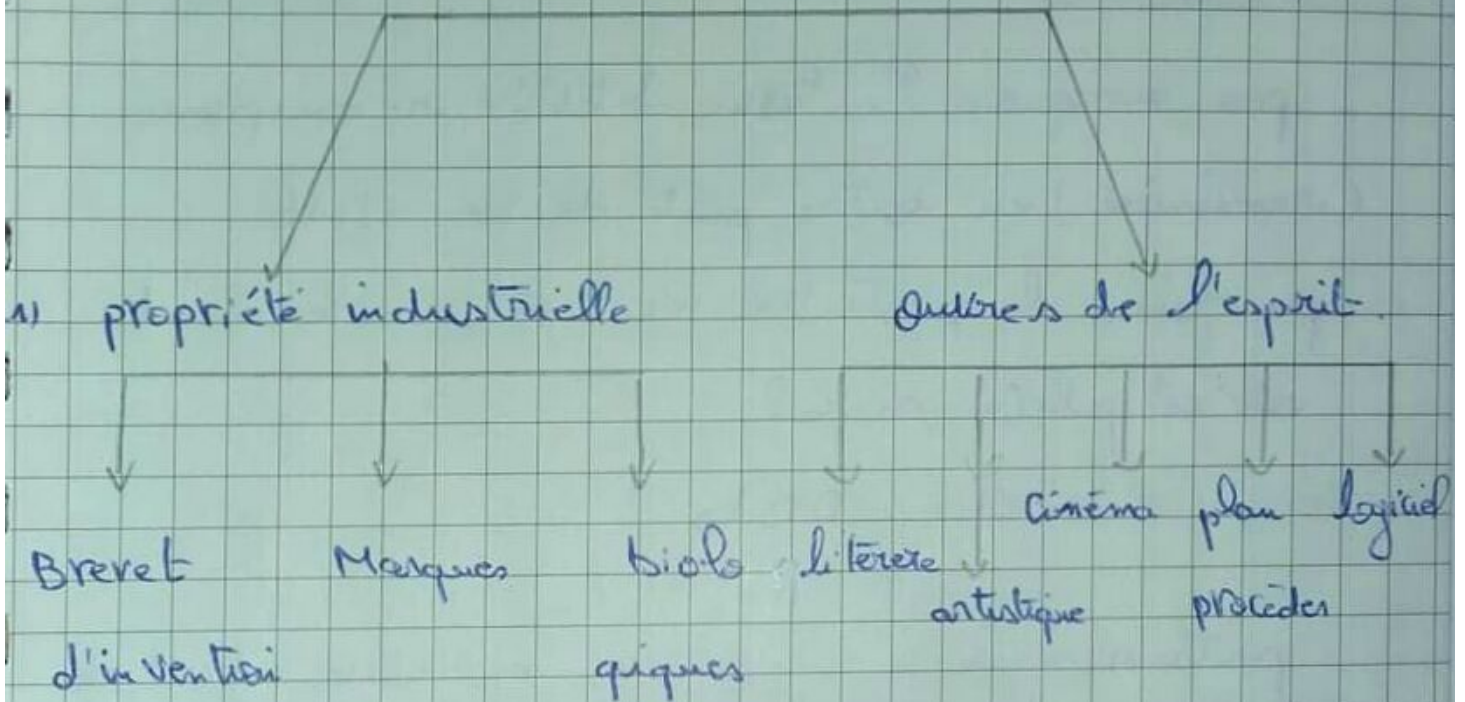 1) propriété industrielle
Œuvres de l'esprit
Brevet d'invention
Marques
biolo
giques
litérere
artistique
Cinéma
plan
procéder
logiciel